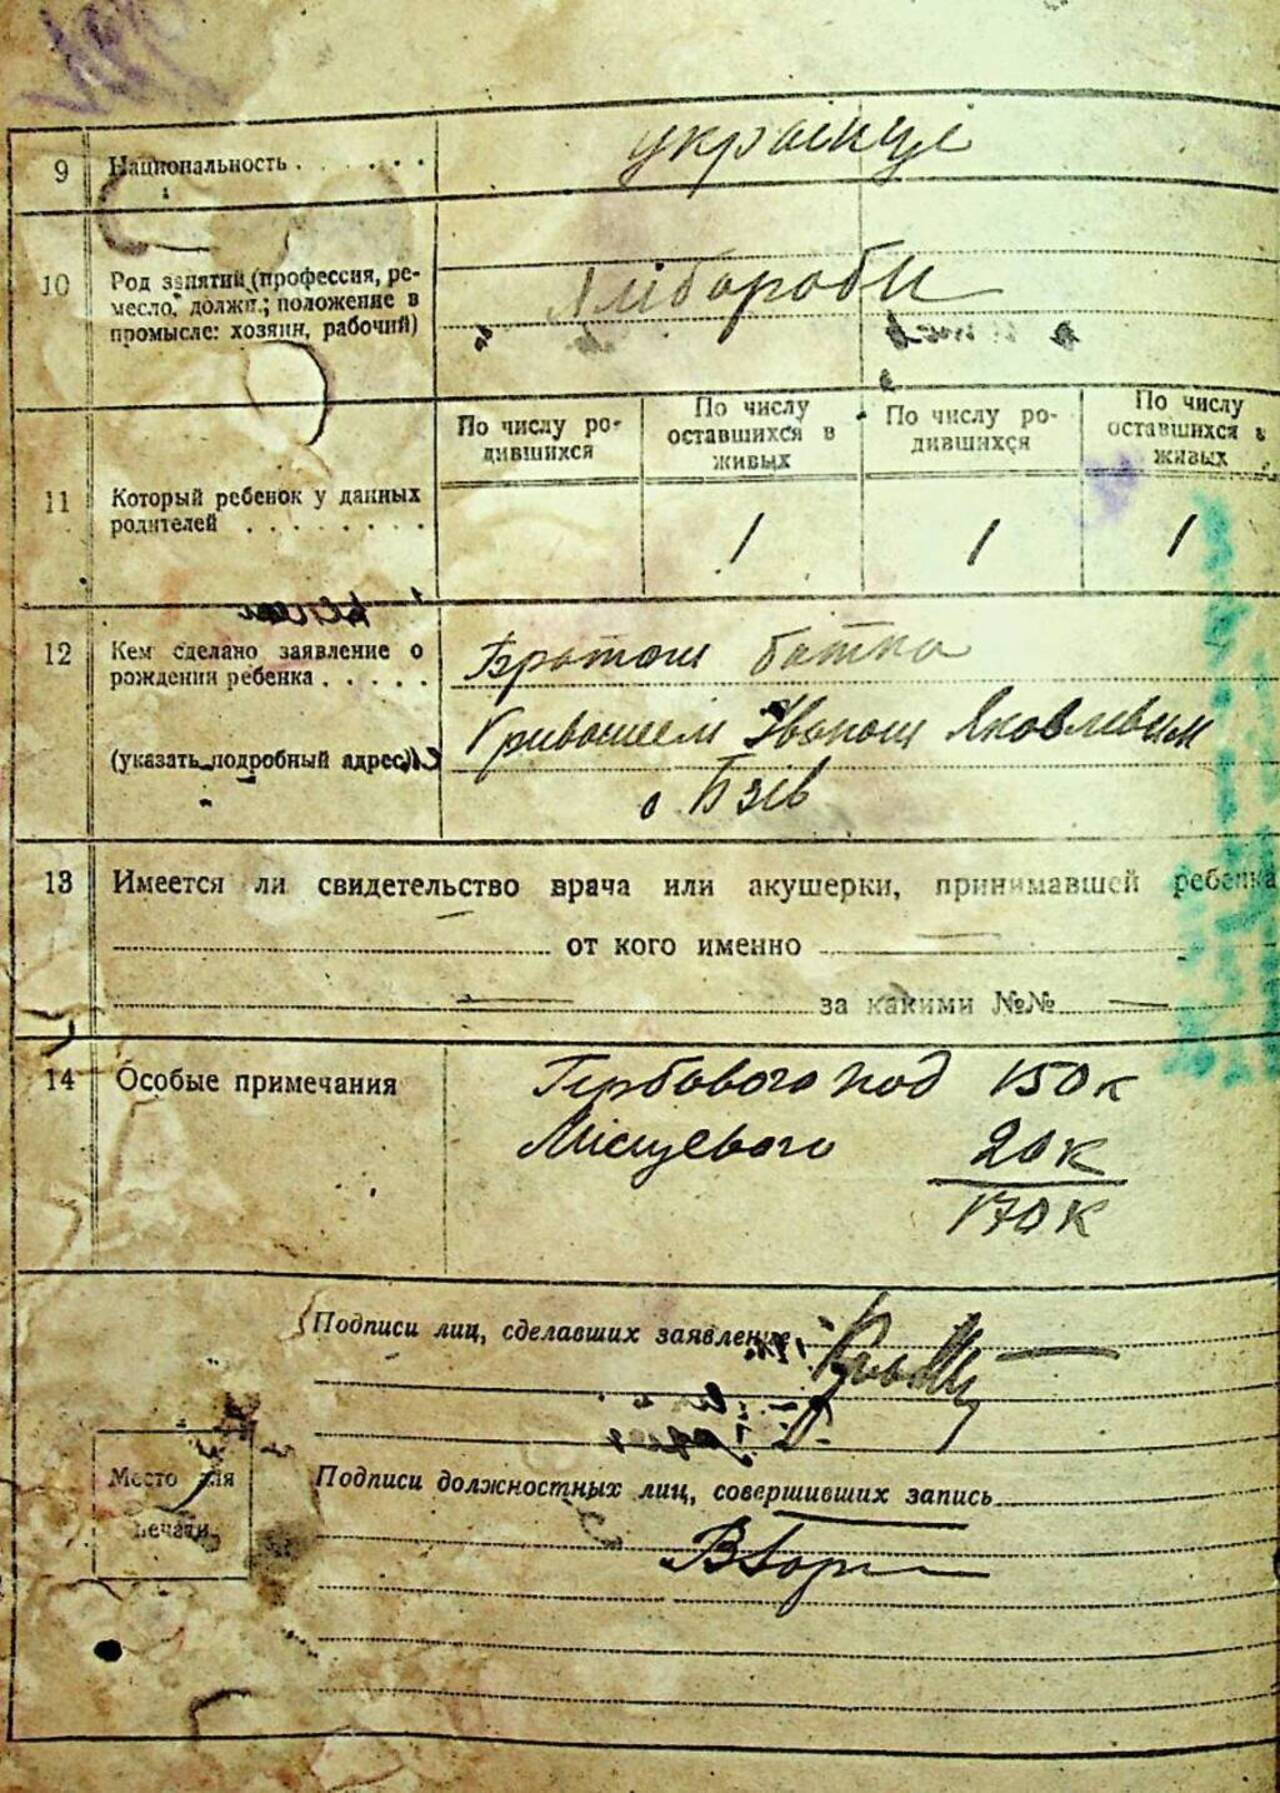 9 Национальность . . . . . . українці
10 Род занятий (профессия, ре-
месло, должн.; положение в
промысле: хозяин, рабочий)
Хлібороби
По числу ро-
дившихся
По числу
оставшихся в
живых
По числу ро-
дившихся
По числу
оставшихся в
живых
11 Который ребенок у данных
родителей . . . . . . . .
1 1 1
12 Кем сделано заявление о
рождении ребенка . . . . .
(указать подробный адрес)
Братом батка
Кривошеем Іваном Яковлевим
с Бзів
13 Имеется ли свидетельство врача или акушерки, принимавшей ребенка
от кого именно
за какими №№
14 Особые примечания
Гербового под 150к
Місцевого 20к
170к
Подписи лиц, сделавших заявление
Место для
печати
Подписи должностных лиц, совершивших запись